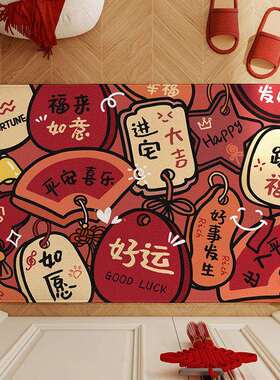 幸福
福来
如意
ORTUNE
进宅
大吉
Happy
发
福
平安喜乐
好事发生
Rich
Rich
好运
GOOD LUCK
如愿